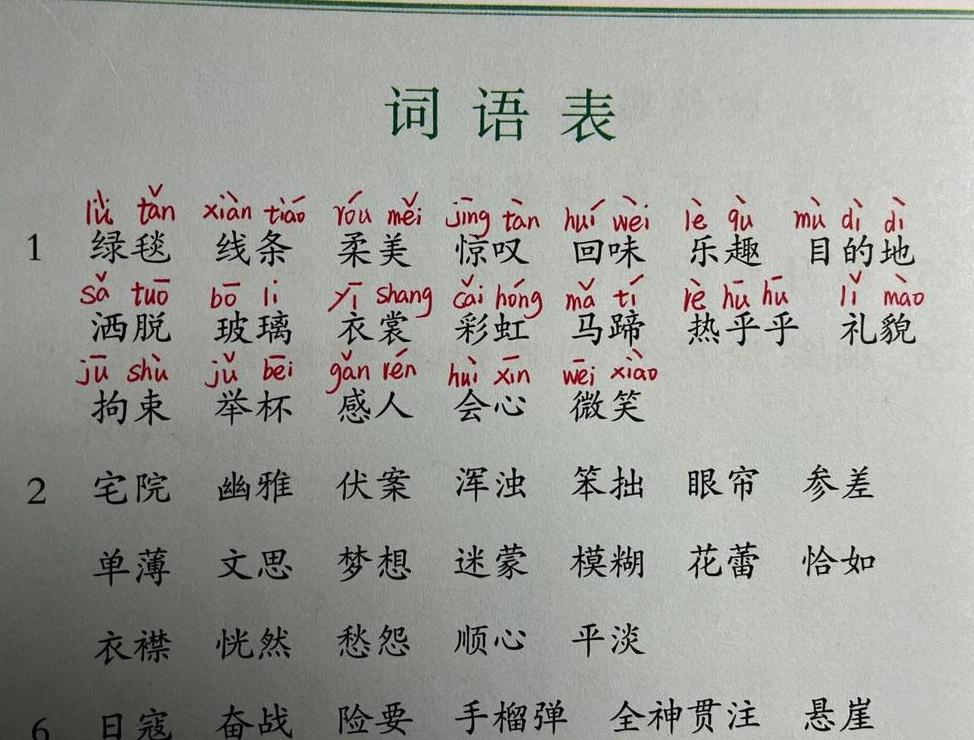 词语表
lǜ tǎn xiàn tiáo róu měi jīng tàn huí wèi lè qù mù dì dì
1 绿毯 线条 柔美 惊叹 回味 乐趣 目的地
sǎ tuō bō li yī shang cǎi hóng mǎ tí rè hū hū lǐ mào
洒脱 玻璃 衣裳 彩虹 马蹄 热乎乎 礼貌
jū shù jǔ bēi gǎn rén huì xīn wēi xiào
拘束 举杯 感人 会心 微笑
2 宅院 幽雅 伏案 浑浊 笨拙 眼帘 参差
单薄 文思 梦想 迷蒙 模糊 花蕾 恰如
衣襟 恍然 愁怨 顺心 平淡
6 日寇 奋战 险要 手榴弹 全神贯注 悬崖